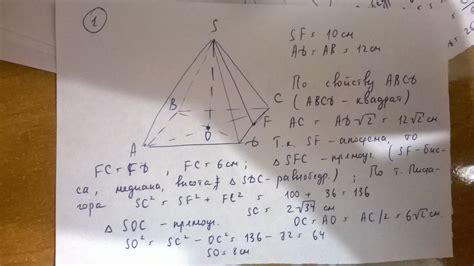 1
S
SF = 10 см
AD = AB = 12 см
По свойству ABCD
(ABCD - квадрат)
AC = AD√2 = 12√2 см
B
C
F
O
A
D
Т.к. SF - апофема, то
FC = FD, FC = 6 см; △ SFC - прямоуг. (SF - бис-
са, медиана, высота △ SDC - равнобедр.); По т. Пифа-
гора SC² = SF² + FC² = 100 + 36 = 136
SC = 2√34 см
△ SOC - прямоуг. OC = AO = AC/2 = 6√2 см
SO² = SC² - OC² = 136 - 72 = 64
SO = 8 см